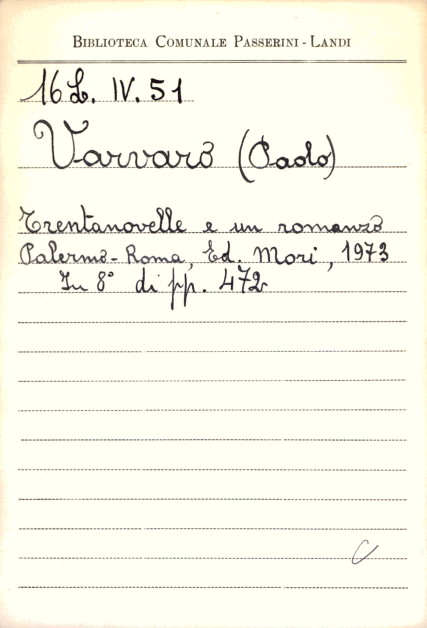 BIBLIOTECA COMUNALE PASSERINI - LANDI
16 L. IV. 51
Varvaro (Paolo)
Trentanovelle e un romanzo
Palermo - Roma, Ed. Mori, 1973
In 8° di pp. 472